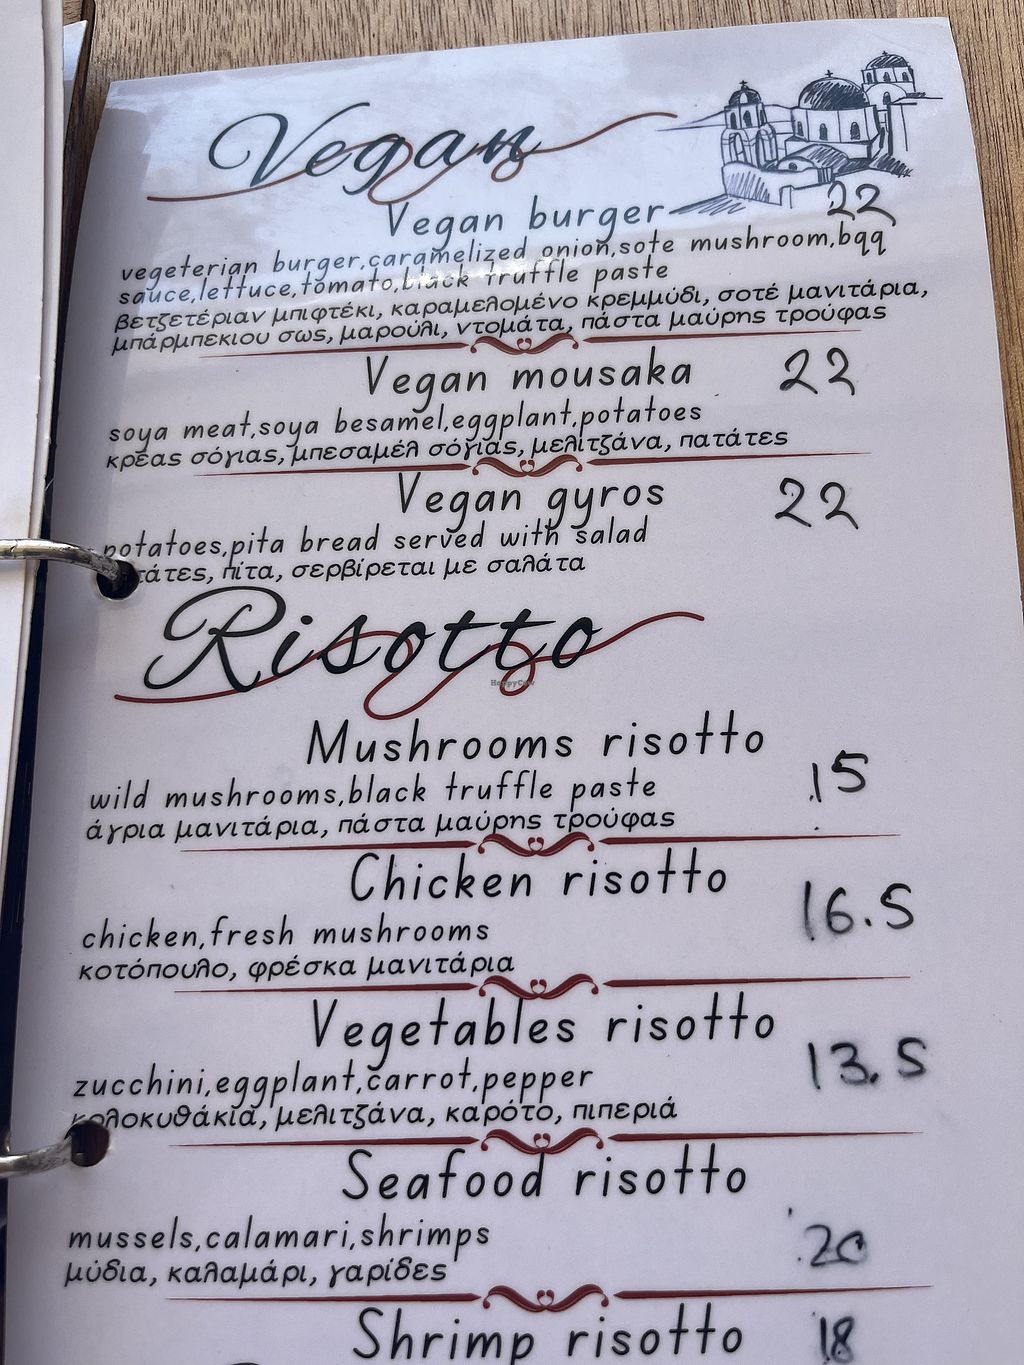 Vegan
Vegan burger 22
vegeterian burger,caramelized onion,sote mushroom,bqq
sauce,lettuce,tomato,black truffle paste
βετζετέριαν μπιφτέκι, καραμελομένο κρεμμύδι, σοτέ μανιτάρια,
μπάρμπεκιου σως, μαρούλι, ντομάτα, πάστα μαύρης τρούφας
Vegan mousaka 22
soya meat,soya besamel,eggplant,potatoes
κρέας σόγιας, μπεσαμέλ σόγιας, μελίτζάνα, πατάτες
Vegan gyros 22
potatoes,pita bread served with salad
τάτες, πίτα, σερβίρεται με σαλάτα
Risotto
HappyCow
Mushrooms risotto
15
wild mushrooms,black truffle paste
άγρια μανιτάρια, πάστα μαύρης τρούφας
Chicken risotto
16.5
chicken,fresh mushrooms
κοτόπουλο, φρέσκα μανιτάρια
Vegetables risotto
13.5
zucchini,eggplant,carrot,pepper
κολοκυθάκια, μελιτζάνα, καρότο, πιπεριά
Seafood risotto
mussels,calamari,shrimps 20
μύδια, καλαμάρι, γαρίδες
Shrimp risotto 18